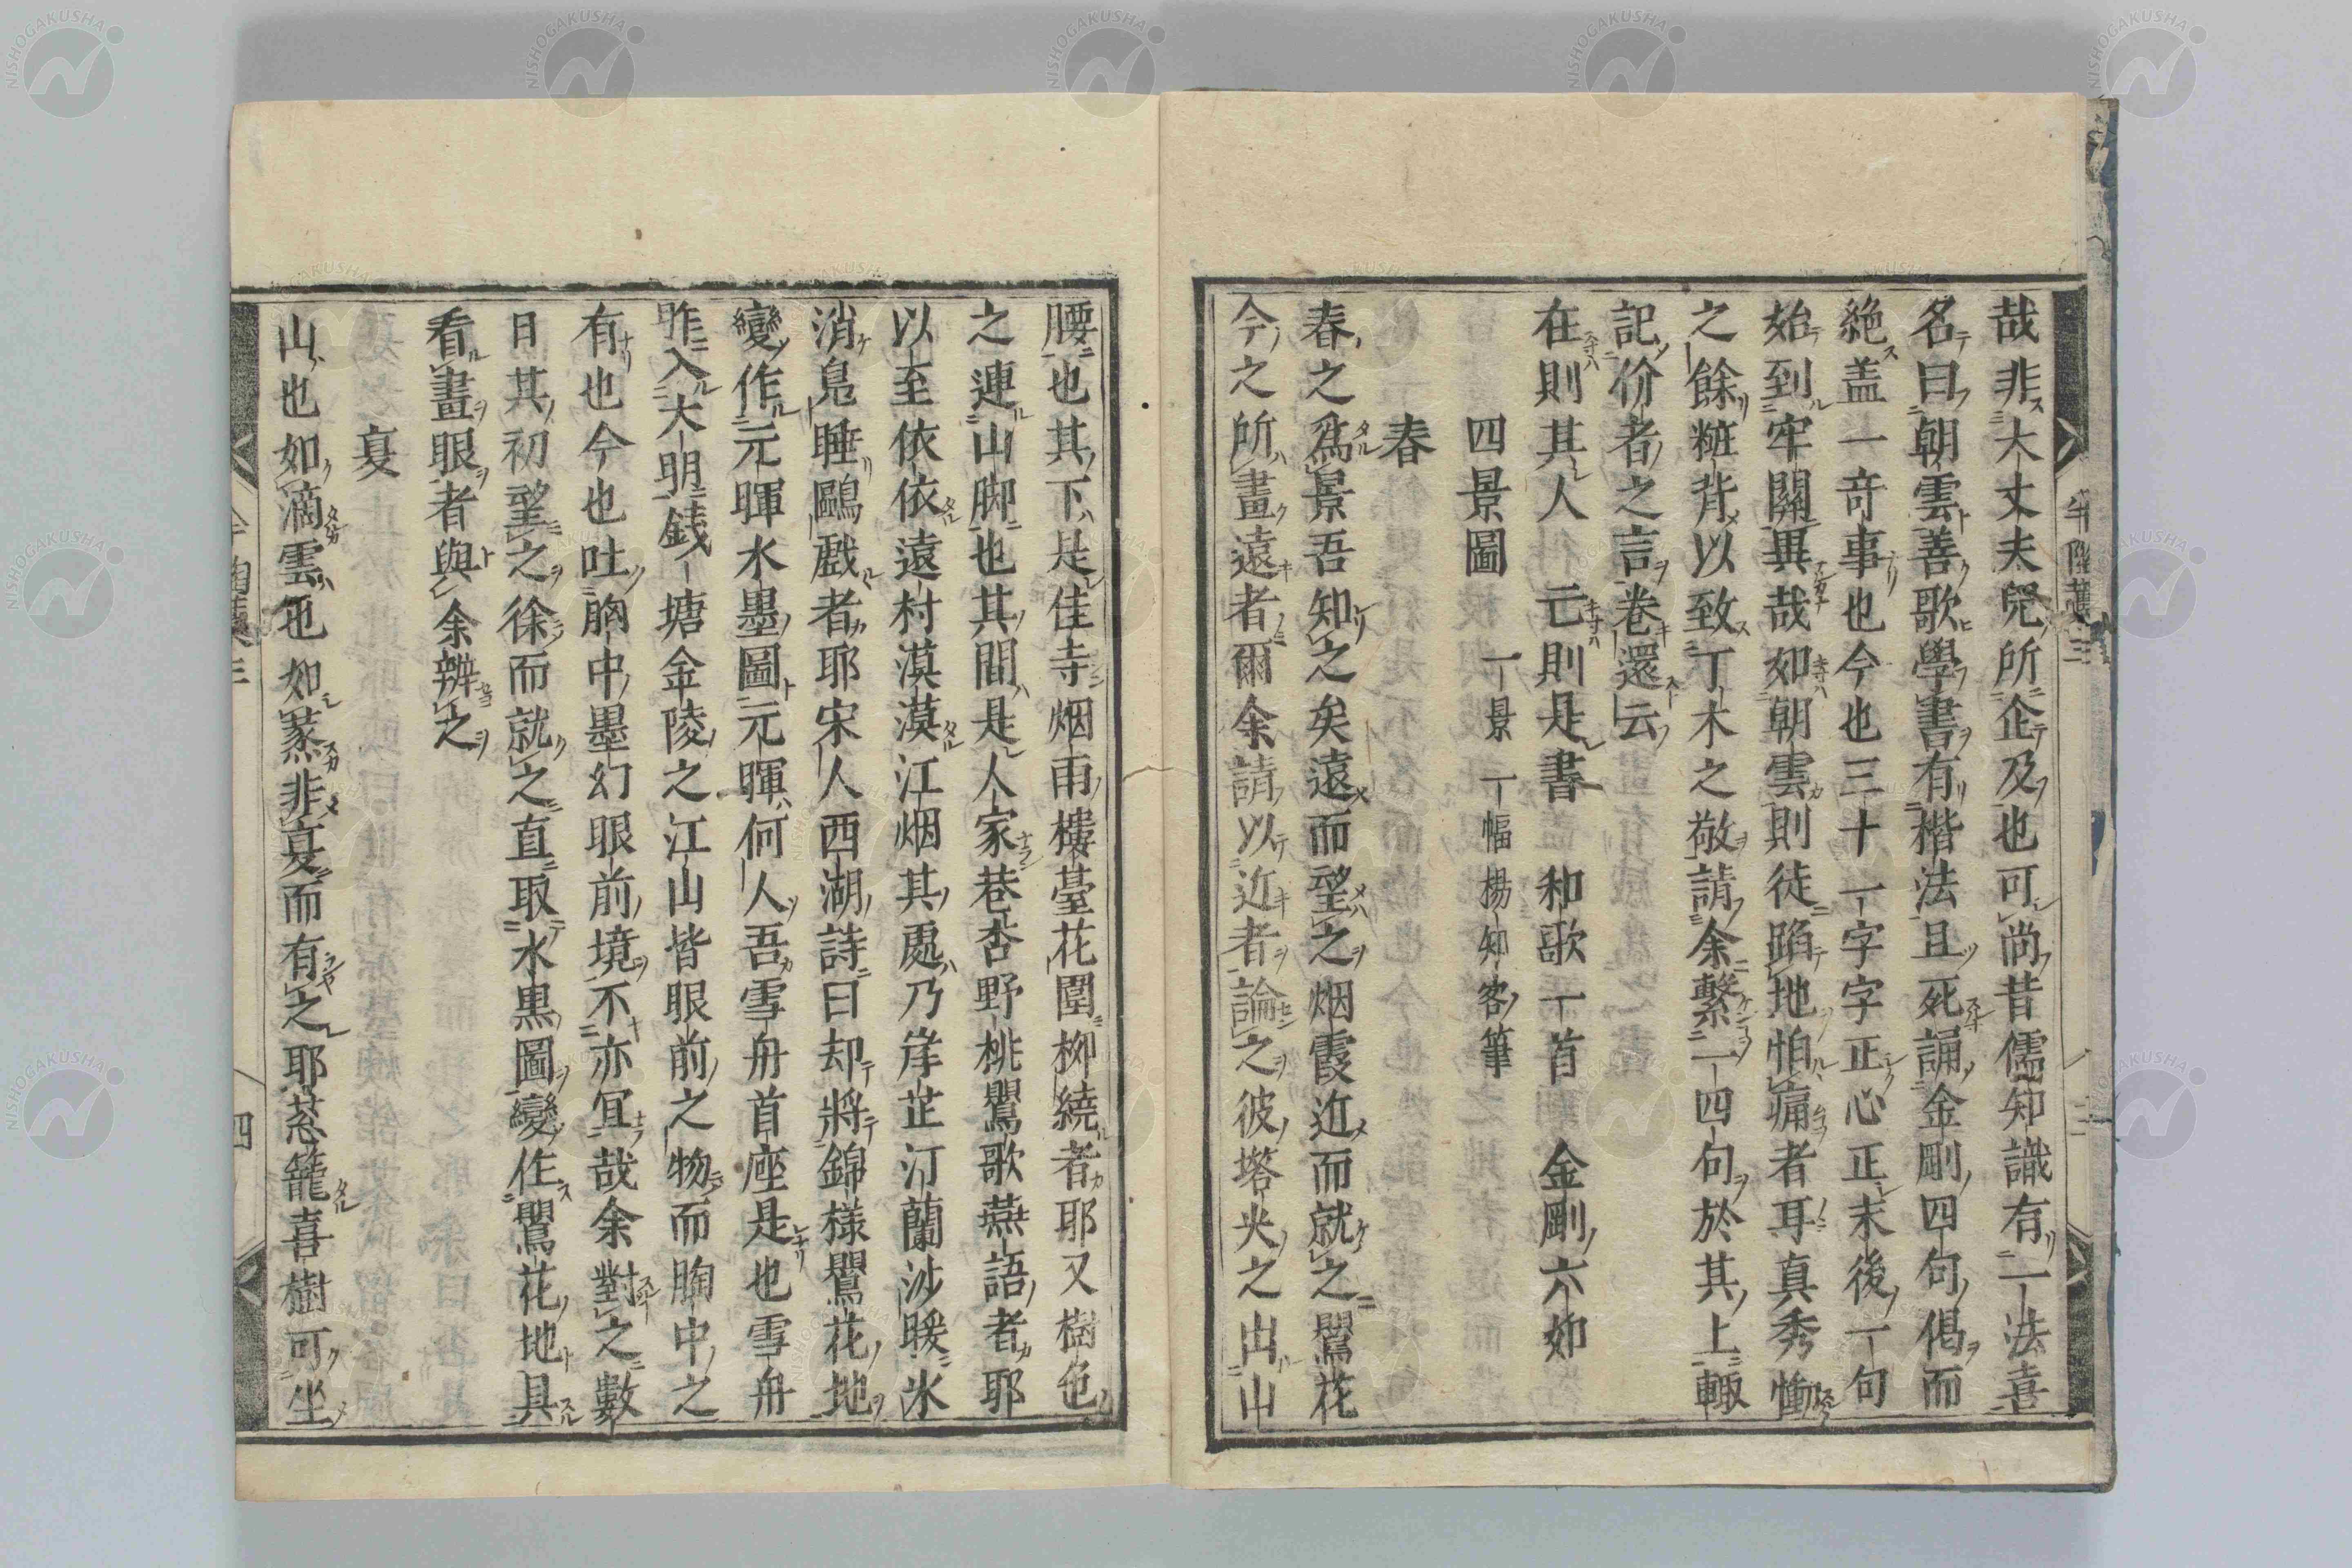 哉非大丈夫兒所企及也可尚昔儒知識有一法喜
名曰朝雲善歌學書有楷法且死誦金剛四句偈而
絶盖一奇事也今也三十一字字正心正末後一句
始到牢關異哉如朝雲則徒蹈地怕痛者耳真秀慟
之餘粧背以致丁木之敬請余繫一四句於其上輙
記份者之言卷還云
在則其人　亡則是書　和歌一首　金剛六如
四景圖　一景一幅楊知客筆
春
春之爲景吾知之矣遠而望之烟霞近而就之鸎花
今之所畫遠者爾余請以近者論之彼塔尖之出山
腰也其下是佳寺烟雨樓臺花圍柳繞者耶又樹色
之連山脚也其間是人家巷杏野桃鸎歌燕語者耶
以至依依遠村漠漠江烟其處乃岸芷汀蘭沙暖氷
消鳧睡鷗戲者耶宋人西湖詩曰却將錦樣鸎花地
變作元暉水墨圖元暉何人吾雪舟首座是也雪舟
昨入大明錢塘金陵之江山皆眼前之物而胸中之
有也今也吐胸中墨幻眼前境不亦冝哉余對之數
日其初望之徐而就之直取水黒圖變作鸎花地具
看畫眼者與余辨之
夏
山也如滴雲也如蒸非夏而有之耶葱籠喜樹可坐
四
NISHOGAKUSHA
NISHOGAKUSHA
NISHOGAKUSHA
NISHOGAKUSHA
NISHOGAKUSHA